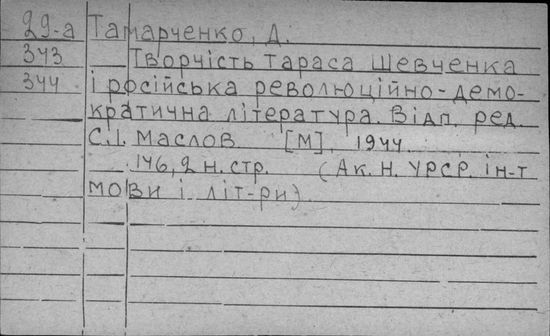 29-а Тамарченко, Д.
343 Творчість Тараса Шевченка
344 і російська революційно-демо-
кратична література. Відп. ред.
С.І. Маслов [М], 1944.
146, 2 н. стр. (Ак. Н. УРСР. ін-т
мови і літ-ри).